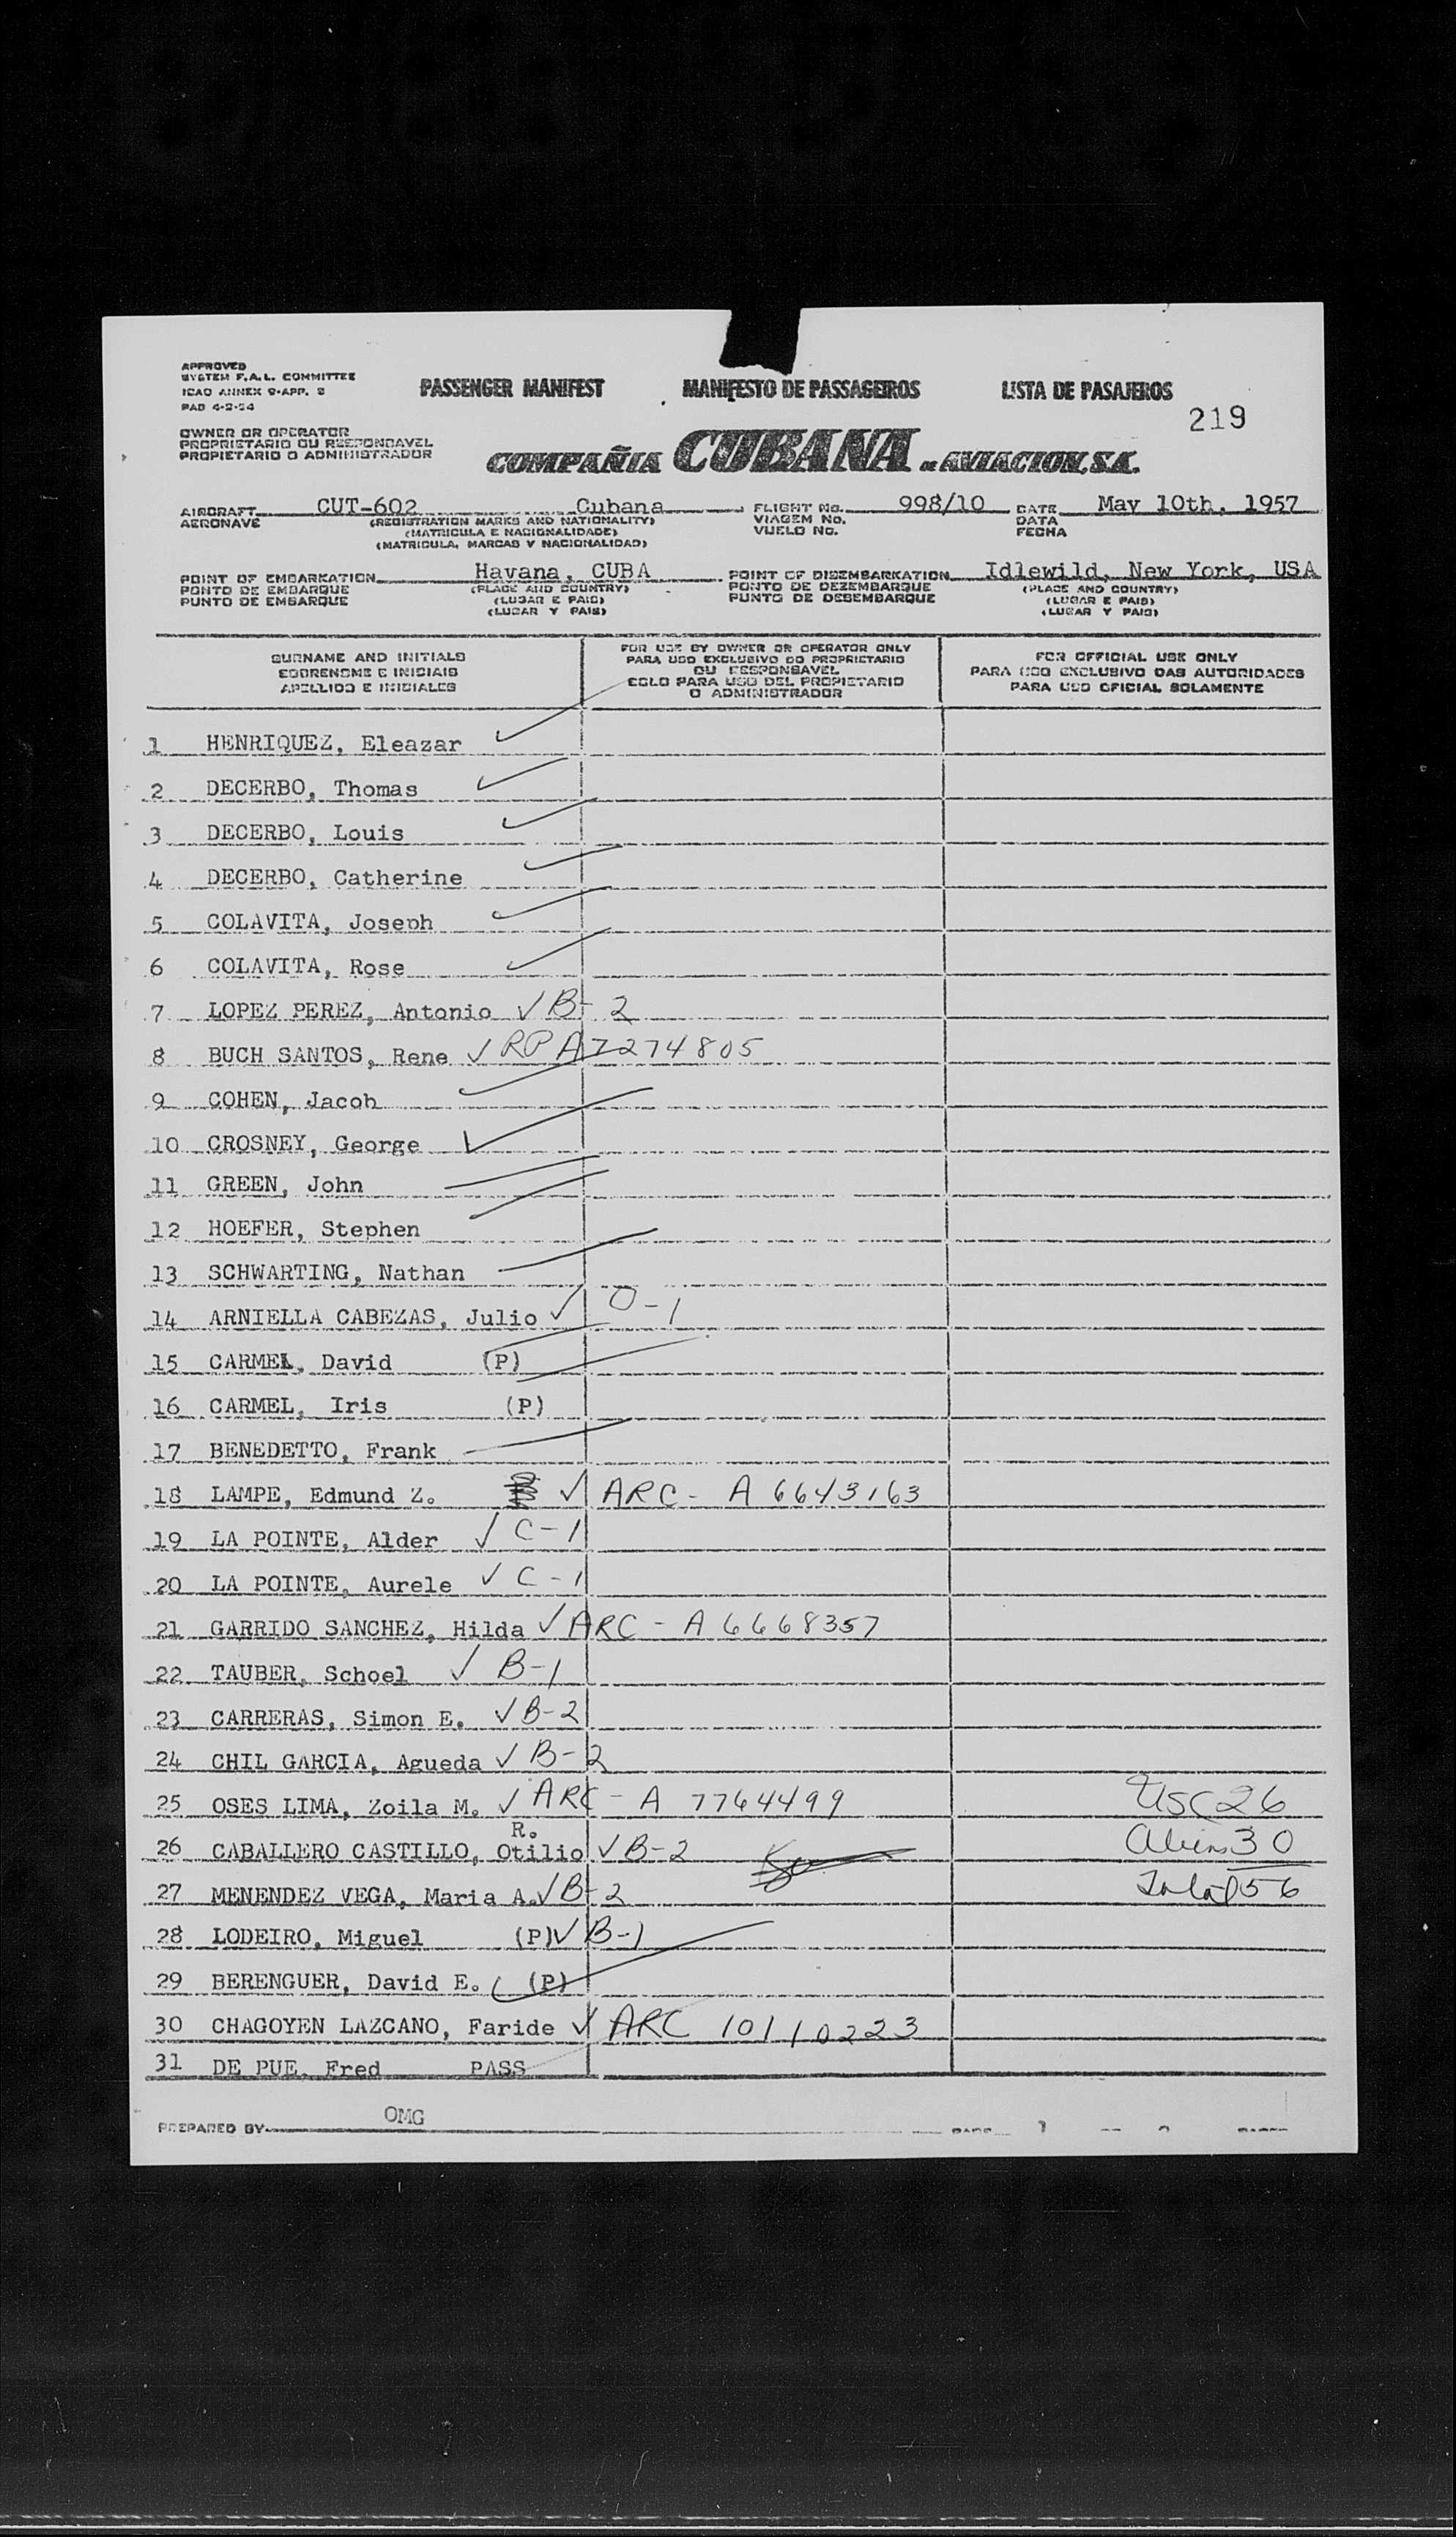 APPROVED
SYSTEM F.A.L. COMMITTEE
ICAO ANNEX 9-APP. 2
PAD 4-2-54
PASSENGER MANIFEST MANIFESTO DE PASSAGEIROS LISTA DE PASAJEROS
219
OWNER OR OPERATOR
PROPRIETARIO OU RESPONSAVEL
PROPIETARIO O ADMINISTRADOR
COMPAÑIA CUBANA DE AVIACION, S.A.
AIRCRAFT CUT-602 Cubana FLIGHT No. 998/10 DATE May 10th, 1957
AERONAVE (REGISTRATION MARKS AND NATIONALITY) VIAGEM No. DATA
(MATRICULA E NACIONALIDADE) VUELO No. FECHA
(MATRICULA, MARCAS Y NACIONALIDAD)
POINT OF EMBARKATION Havana, CUBA POINT OF DISEMBARKATION Idlewild, New York, USA
PONTO DE EMBARQUE (PLACE AND COUNTRY) PONTO DE DEZEMBARQUE (PLACE AND COUNTRY)
PUNTO DE EMBARQUE (LUGAR E PAIS) PUNTO DE DESEMBARQUE (LUGAR E PAIS)
(LUGAR Y PAIS) (LUGAR Y PAIS)
SURNAME AND INITIALS
SOBRENOME E INICIAIS
APELLIDO E INICIALES
FOR USE BY OWNER OR OPERATOR ONLY
PARA USO EXCLUSIVO DO PROPRIETARIO
OU RESPONSAVEL
SOLO PARA USO DEL PROPIETARIO
O ADMINISTRADOR
FOR OFFICIAL USE ONLY
PARA USO EXCLUSIVO DAS AUTORIDADES
PARA USO OFICIAL SOLAMENTE
1 HENRIQUEZ, Eleazar ✓
2 DECERBO, Thomas ✓
3 DECERBO, Louis ✓
4 DECERBO, Catherine ✓
5 COLAVITA, Joseph ✓
6 COLAVITA, Rose ✓
7 LOPEZ PEREZ, Antonio ✓ B-2
8 BUCH SANTOS, Rene ✓ RP A7274805
9 COHEN, Jacob ✓
10 CROSNEY, George ✓
11 GREEN, John
12 HOEFER, Stephen
13 SCHWARTING, Nathan
14 ARNIELLA CABEZAS, Julio ✓ O-1
15 CARMEL, David (P)
16 CARMEL, Iris (P)
17 BENEDETTO, Frank
18 LAMPE, Edmund Z. ✓ ARC- A 6643163
19 LA POINTE, Alder ✓ C-1
20 LA POINTE, Aurele ✓ C-1
21 GARRIDO SANCHEZ, Hilda ✓ ARC- A 6668357
22 TAUBER, Schoel ✓ B-1
23 CARRERAS, Simon E. ✓ B-2
24 CHIL GARCIA, Agueda ✓ B-2
25 OSES LIMA, Zoila M. ✓ ARC- A 7764499 USC 26
26 CABALLERO CASTILLO, Otilio R. ✓ B-2 Alien 30
27 MENENDEZ VEGA, Maria A. ✓ B-2 Total 56
28 LODEIRO, Miguel (P) ✓ B-1
29 BERENGUER, David E. ✓ (P)
30 CHAGOYEN LAZCANO, Faride ✓ ARC 10110223
31 DE PUE, Fred PASS
PREPARED BY OMG 1